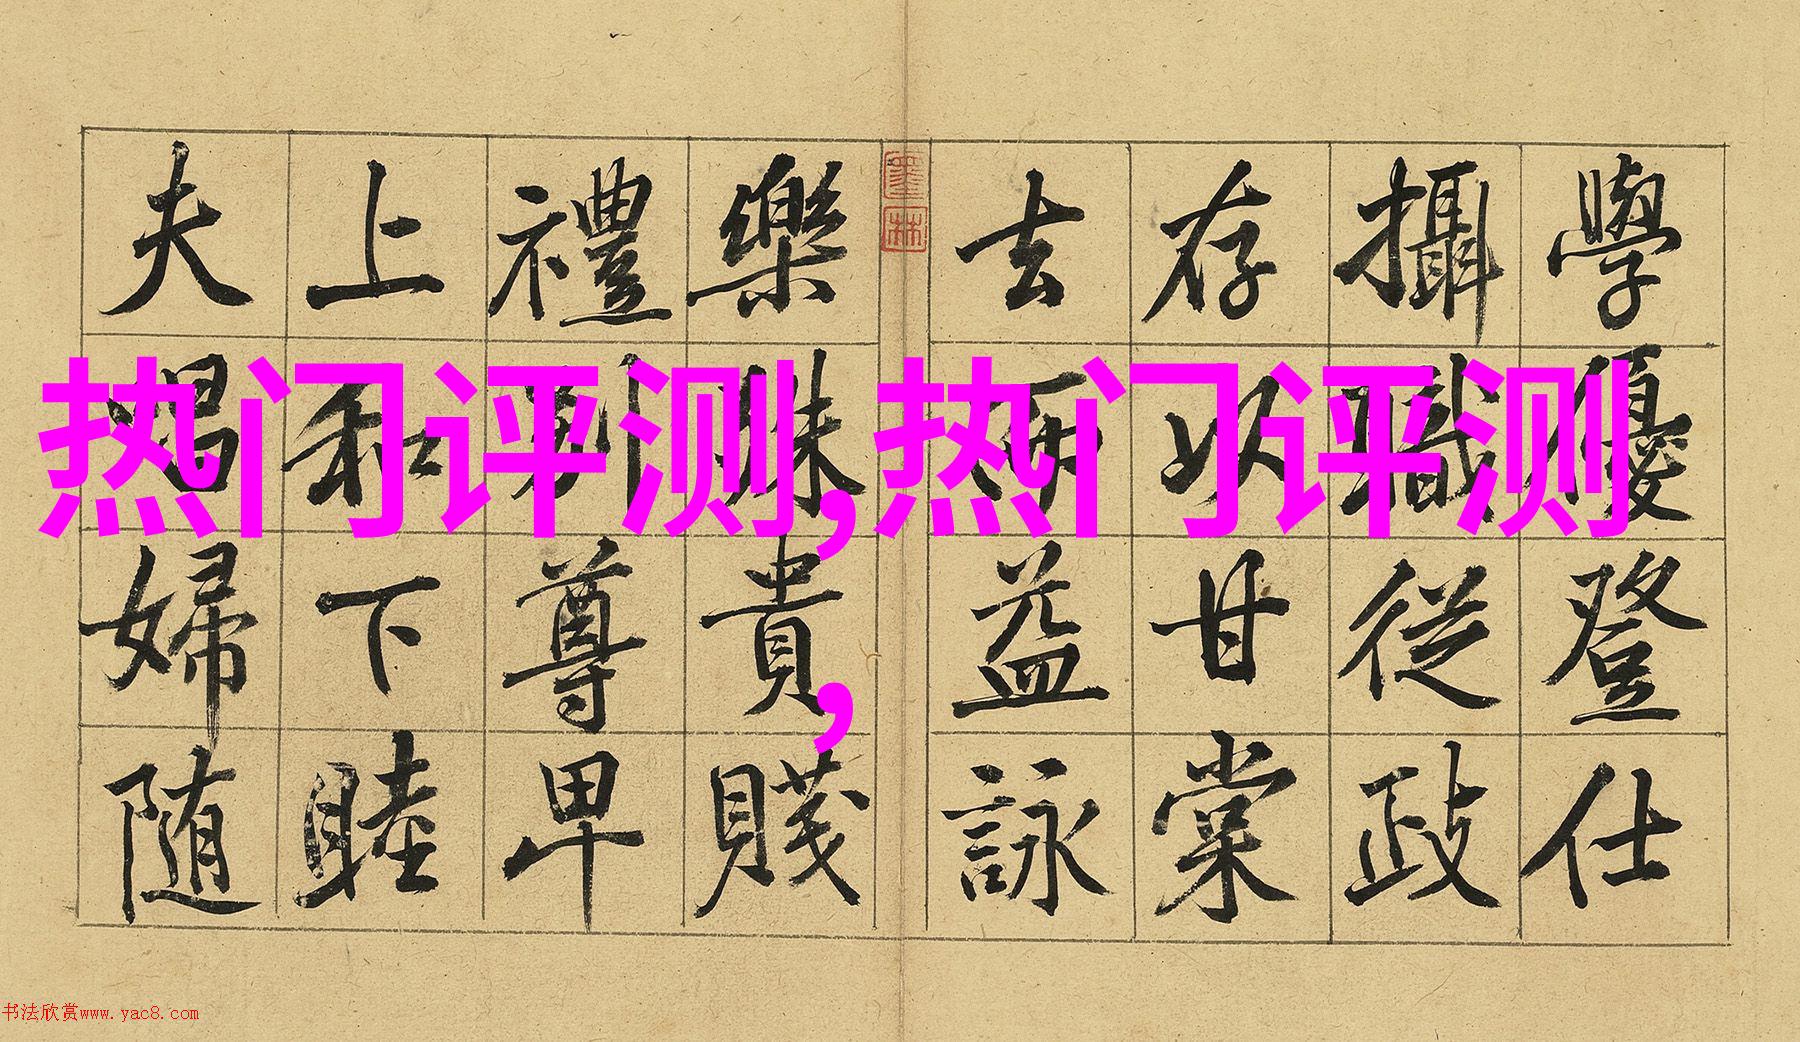 學優登仕
攝職從政
存以甘棠
去而益詠
墨林
樂殊貴賤
禮別尊卑
上和下睦
夫唱婦随
热门评测,热门评测
,
书法欣赏www.yac8.com